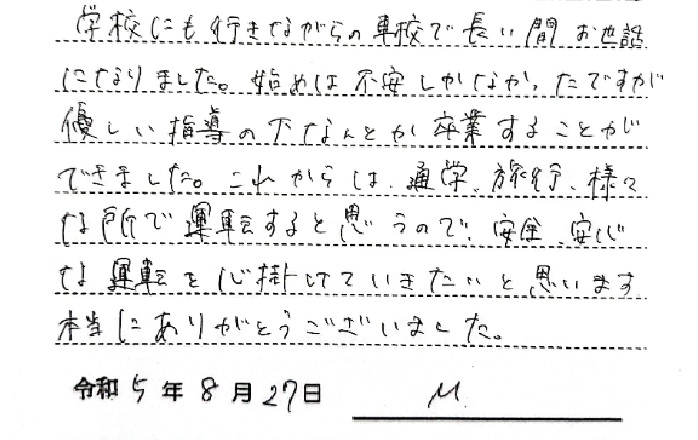 学校にも行きながらの車校で長い間お世話
になりました。始めは不安しかなかったですが
優しい指導の下なんとか卒業することが
できました。これからは、通学、旅行、様々
な所で運転すると思うので、安全、安心
な運転を心掛けていきたいと思います
本当にありがとうございました。
令和5年8月27日 M.